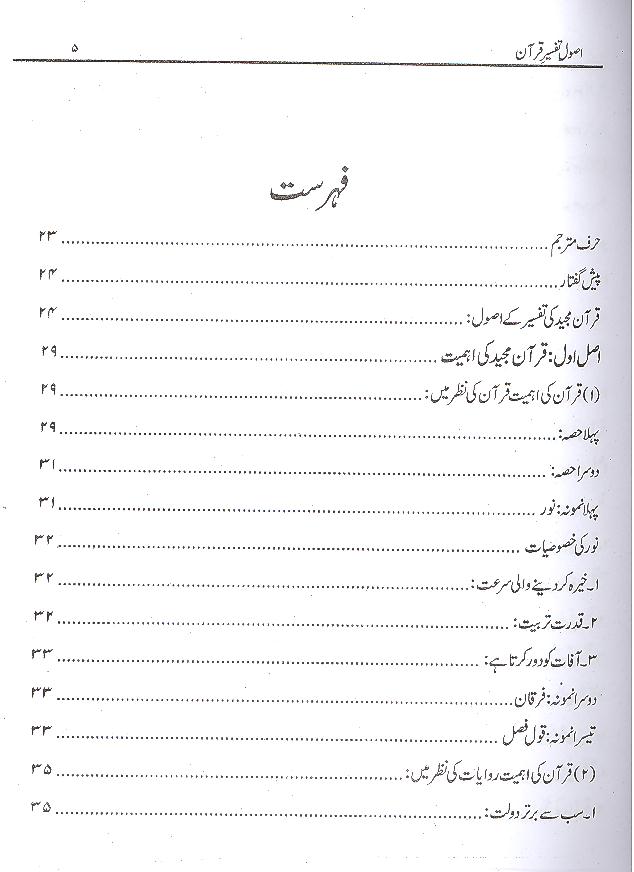 اصول تفسیر قرآن ۵
فہرست
حرف مترجم ........ ۲۳
پیش گفتار ........ ۲۴
قرآن مجید کی تفسیر کے اصول: ........ ۲۴
اصل اول: قرآن مجید کی اہمیت ........ ۲۹
(۱) قرآن کی اہمیت قرآن کی نظر میں: ........ ۲۹
پہلا حصہ: ........ ۲۹
دوسرا حصہ: ........ ۳۱
پہلا نمونہ: نور ........ ۳۱
نور کی خصوصیات ........ ۳۲
۱۔ خیرہ کر دینے والی سرعت: ........ ۳۲
۲۔ قدرت تربیت: ........ ۳۲
۳۔ آفات کو دور کرتا ہے: ........ ۳۳
دوسرا نمونہ: فرقان ........ ۳۳
تیسرا نمونہ: قول فصل ........ ۳۳
(۲) قرآن کی اہمیت روایات کی نظر میں: ........ ۳۵
۱۔ سب سے برتر دولت: ........ ۳۵